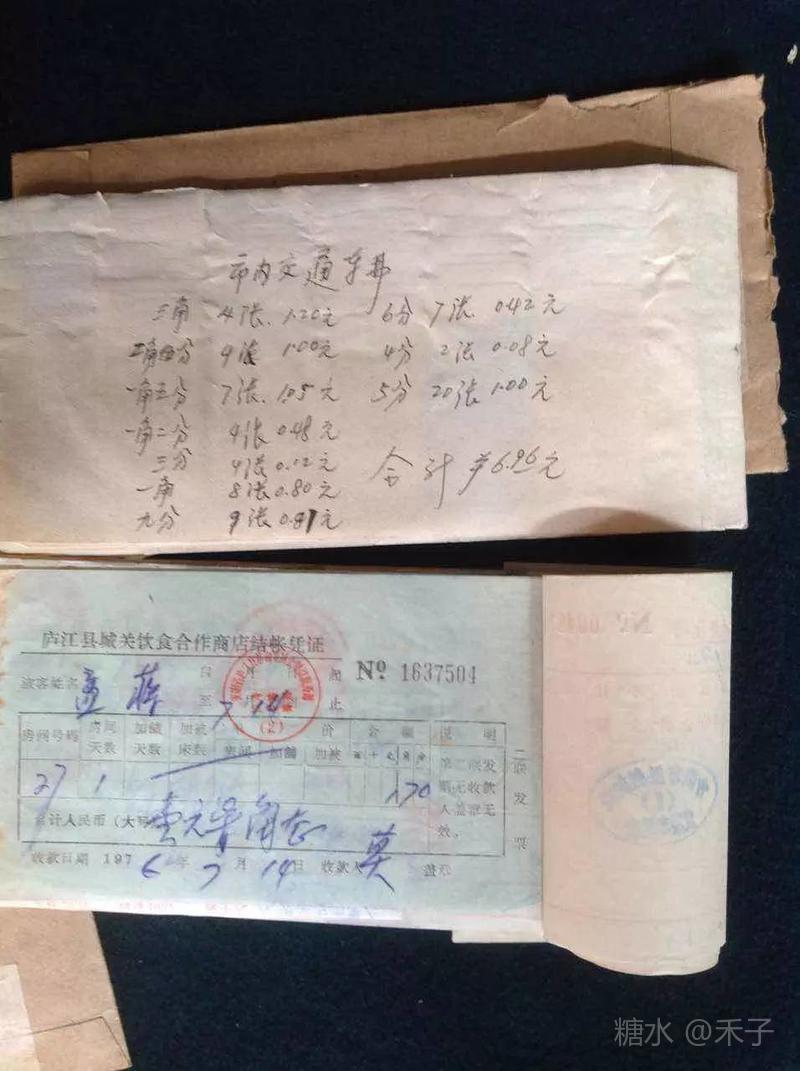 市内交通车费
三角 4张 1.20元 6分 7张 0.42元
二角五分 4张 1.00元 4分 2张 0.08元
一角五分 7张 1.05元 5分 20张 1.00元
一角二分 4张 0.48元
三分 4张 0.12元
一角 8张 0.80元 合计 6.96元
九分 9张 0.81元
庐江县城关饮食合作商店结帐凭证
自 月 日 起
№ 1637504
旅客姓名 孟 蒋 至 7 14 止
房间号码 房间天数 加铺天数 加被床数 房间 加铺 加被 价 金额 说明
27 1 1 70
第二联发票无收款人盖章无效。
二联发票
合计人民币(大写) 壹元柒角
收款日期 1976年7月14日 收款人 莫 盖章
(2)
糖水 @禾子